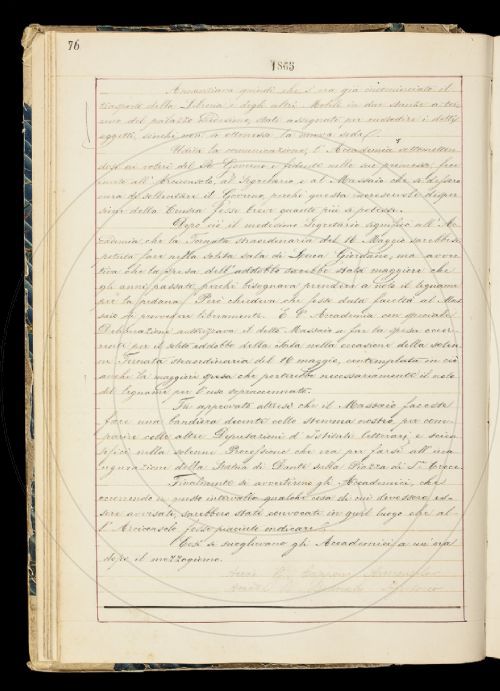 76
1865
Annunziava quindi che s'era già incominciato il
trasporto della Libreria e degli altri Mobili in due stanze a ter-
reno del palazzo Riccardi, state assegnate per custodire i detti
oggetti, finchè non si ottenesse la nuova sede.
Udita la comunicazione, l'Accademia
del R. Governo e fidente nelle sue promesse, fece
all'Arciconsolo, al Segretario e al Massaio che si dessero
cura di sollecitare il Governo, perchè questa increscevole disper-
sione della Crusca fosse breve quanto più si potesse.
Dopo ciò il medesimo Segretario significò all'Ac-
cademia che la Tornata straordinaria del 16 Maggio sarebbesi
potuta fare nella solita sala di Luca Giordano, ma avver-
tiva che la spesa dell'addobbo sarebbe stata maggiore che
gli anni passati, perchè bisognava prendere a nolo il legname
per la pedana. Però chiedeva che fosse data facoltà al Mas-
saio di provvedere liberamente. E l'Accademia con speciale
Deliberazione autorizzava il detto Massaio a far la spesa occor-
rente per il solito addobbo della Sala nella occasione della solen-
ne Tornata straordinaria del 16 maggio, contemplata in ciò
anche la maggiore spesa che porterebbe necessariamente il nolo
del legname per l'uso sopraccennato.
Fu approvato altresì che il Massaio facesse
fare una bandiera decente collo stemma nostro, per com-
parire colle altre Deputazioni d'Istituti letterari e scien-
tifici nella solenne Processione che era per farsi all'inau-
gurazione della Statua di Dante sulla Piazza di Sta. Croce.
Finalmente si avvertirono gli Accademici, che
occorrendo in questo intervallo qualche cosa di cui dovessero es-
sere avvisati, sarebbero stati convocati in quel luogo che al-
l'Arciconsolo fosse piaciuto indicare.
Così si scioglievano gli Accademici a un'ora
dopo il mezzogiorno.